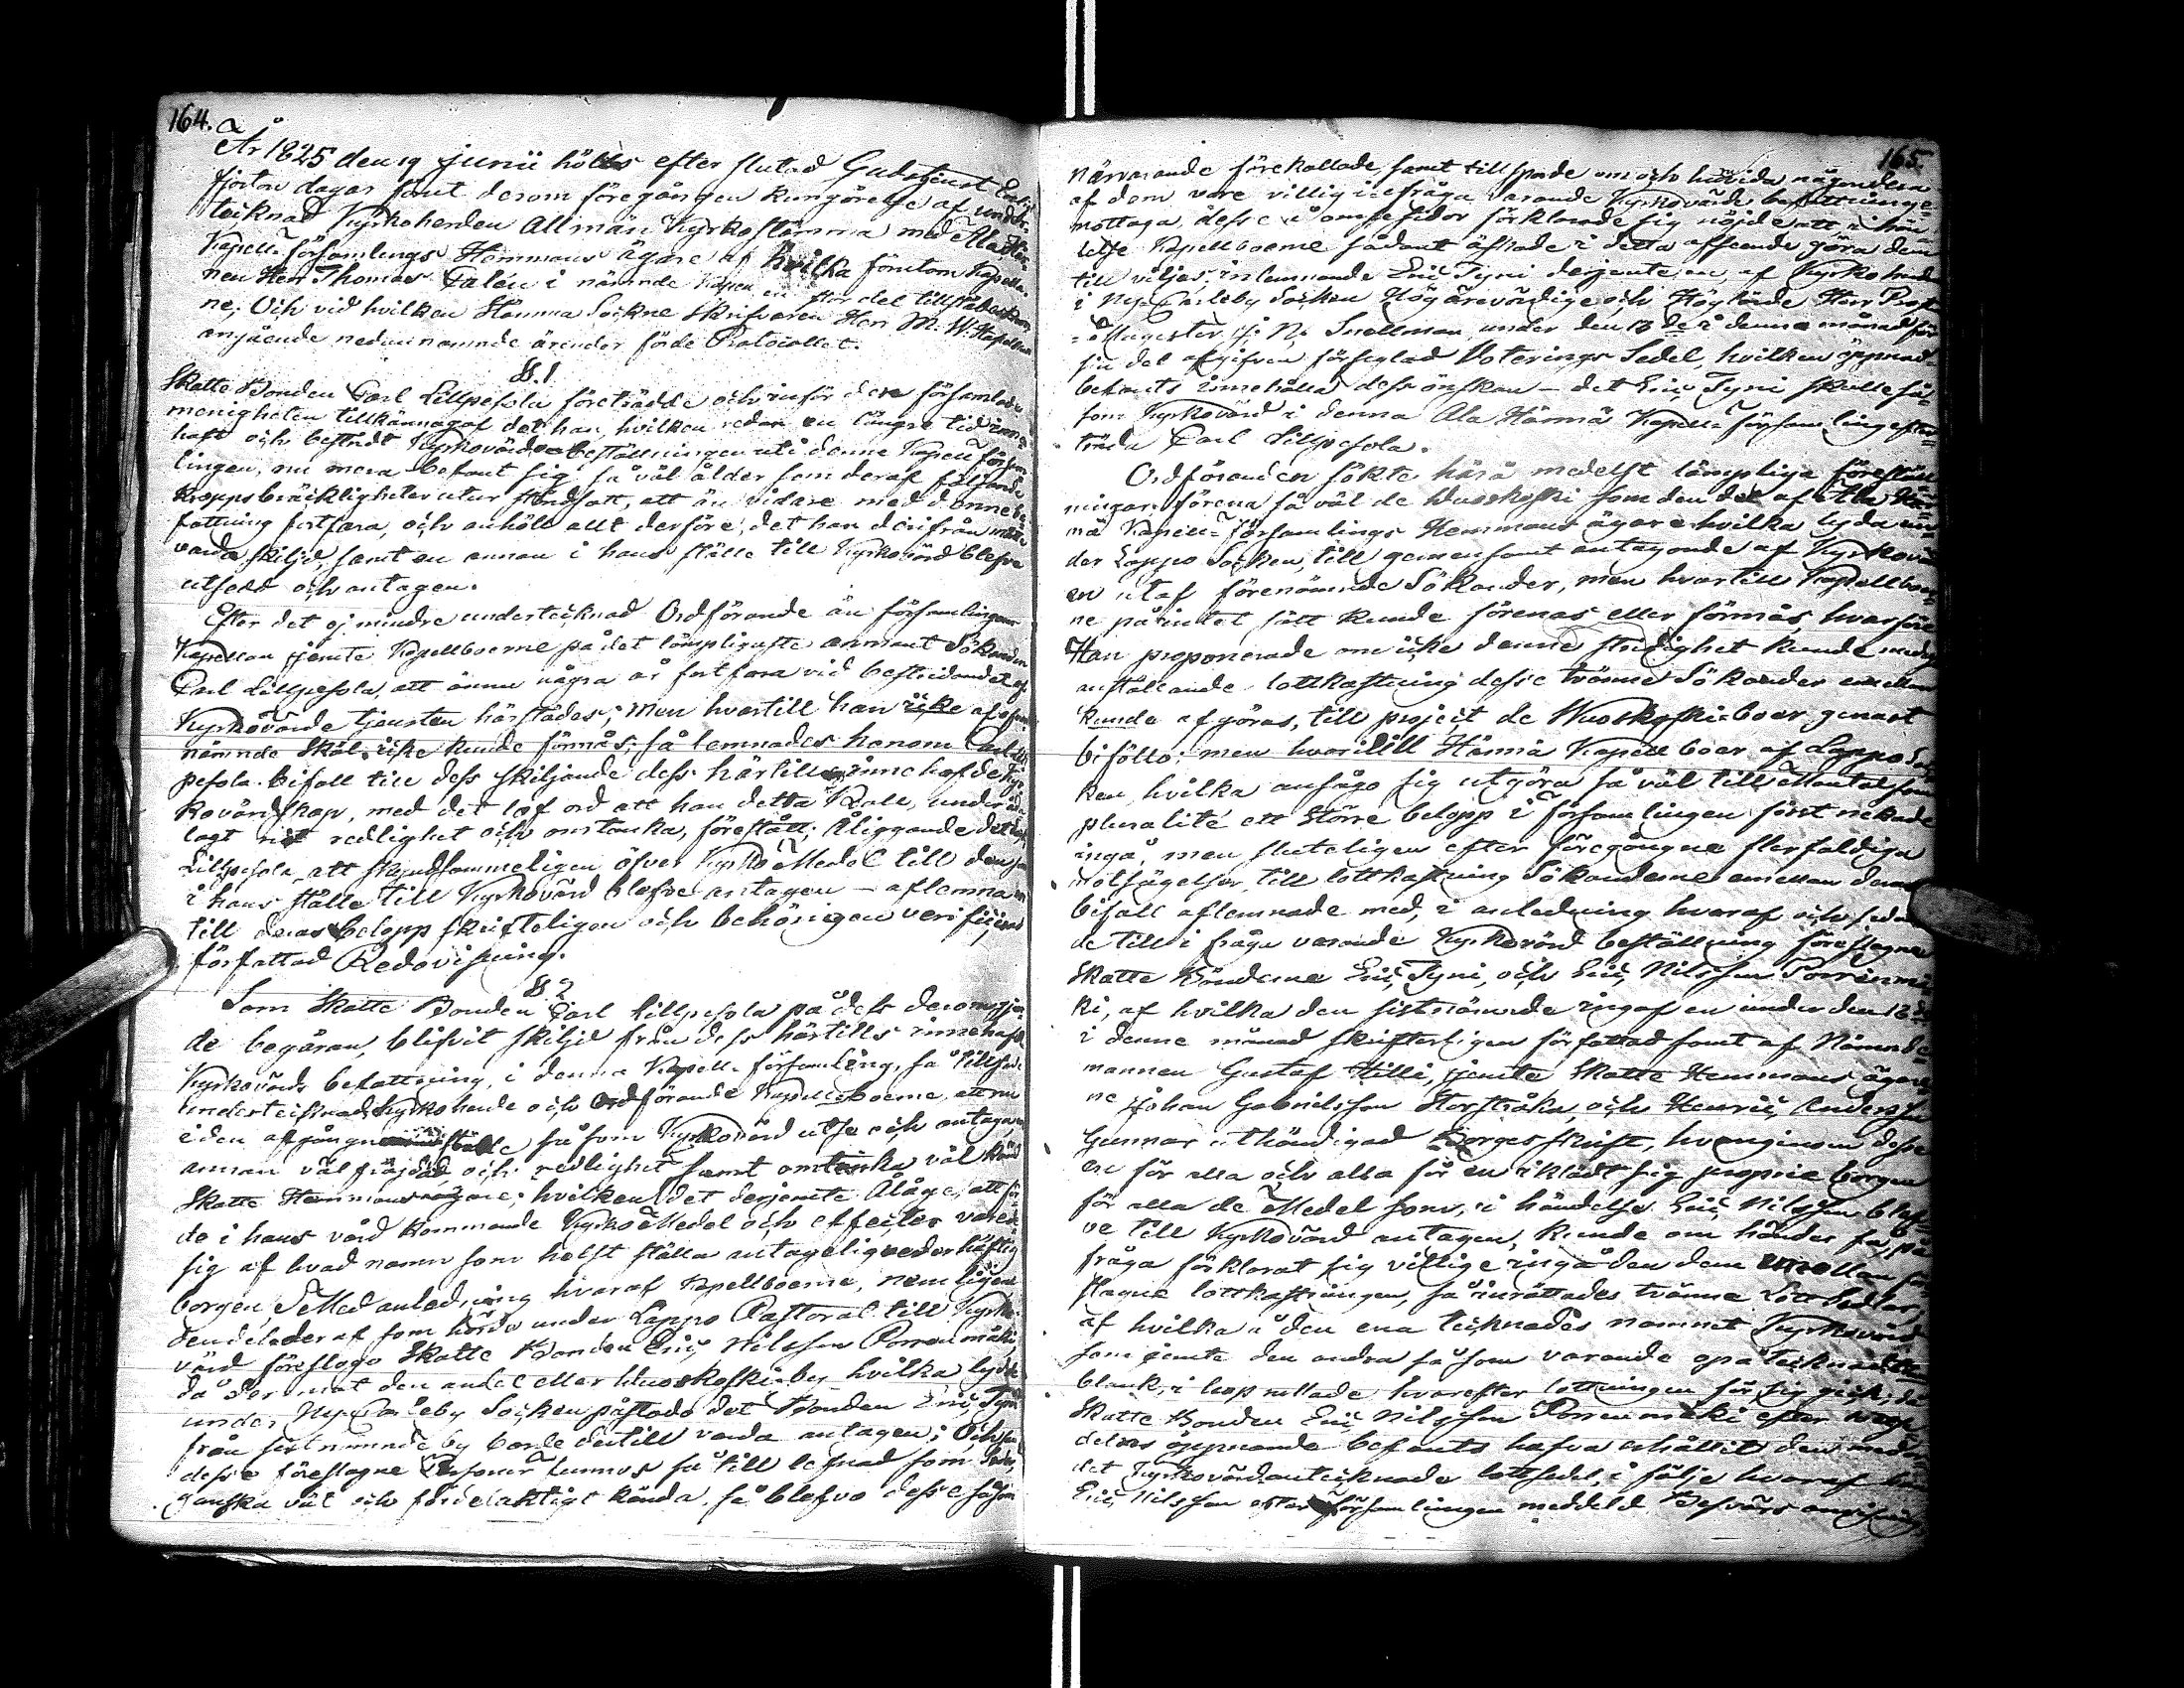 164.
År 1825 den 19 Junii hölts efter slutad Gudstjenst
fjorton dagar samt derom föregången kungörelse af under-
tecknad Kyrkoherden Allmän Kyrkostämma med Ala
Kapell-Församlings Hemmans ägare af hvilka förutom Kapella-
nen Herr Thomas Falén i nämnde Kapell en stor del tillstädeskom
ne, Och vid hvilken Stämma Sockne Skrifvaren Herr M. W.
angående nedannämnde ärender förde Protocollet.
§. 1
Skatte Bonden Carl Lillpesola företrädde och inför den församlade
menigheten tillkännagaf det han, hvilken redan en längre tid inne-
haft och bestridt Kyrkovärds beställningen uti denne Kapell Försam
lingen, nu mera befant sig så väl ålder som deraf följande
Kropps bräckligheter utur ståndsatt, att än vidare med denne be
fattning fortfara, och anhölt allt derföre, det han derifrån
varda skiljd, samt en annan i hans ställe till Kyrkovärd blefve
utsedd och antagen.
Efter det ej mindre undertecknad Ordförande än församlingens
Kapellan jemte Kapellboerne på det lämpligaste anmant Sökanden
Carl Lillpesola, att ännu några år fortfara vid bestridandet af
Kyrkovärds tjensten härstädes; Men hvartill han icke af
nämnde Skäl icke kunde förmås; så lemnades honom Carl Lill
pesola bifall till dess skiljande dess härtills innehafde Kyr
kovärdskap, med det lof ord att han detta Kall, under
lagt nit redlighet och omtanka, förestått; Åliggande det
Lillpesola, att skyndsammeligen öfver Kyrko Medel till den som
i hans ställe till Kyrkovärd blefve antagen – aflemna en
till deras belopp skrifteligen och behörigen verificerad
författad Redovisning.
§ 2
Som Skatte Bonden Carl Lillpesola på dess derom gjor
de begäran, blifvit skiljd från dess härtills innehafde
Kyrkovärds befattning, i denna Kapell-församling, så tillsade
undertecknad Kyrkoherde och Ordförande Kapellboerne, att nu
i den afgångne ställe så som Kyrkovärd utse och antaga en
annan väl frägdad, och redlighet samt omtanka väl känd
Skatte Hemmansägare; hvilken det derjemte Ålåge, att för
de i hans vård kommande Kyrko Medel och effecter vare
sig af hvad namn som helst ställa antagelig vederhäftig
borgen; Med anledning hvaraf Kapellboerne, nemligen
den del deraf som hörde under Lappo Pastorat till Kyrko-
värd föreslogo Skatte Bonden Eric Nilsson Porrenmäki,
då deremot den andel eller Wuoskoski-by hvilka lydde
under Ny-Carleby Socken påstodo det Bonden Eric Tyni
från sistnämnde by borde dertill varda antagen; Och som
desse föreslagne Personer funnos så till lefnad som seder
ganska väl och fördelaktigt kända, så blefvo desse såsom
165.
närvarande förekallade, samt tillsporde om och huvida någondera
af dem vore villig ifråga varande Kyrkovärds befattning e-
mottaga, desse å ömse sidor förklarade sig nöjde att i hän-
delse Kapellboerne sådant äskade i detta afseende göra dem
till viljes; inlemnande Eric Tyni derjemte en, af Kyrkoherden
i Ny-Carleby Socken Högärevördige och Höglärde Herr Prosten
Magister J. N. Snellman under den 13de i denna månad för
sin del afgifven förseglad Voterings Sedel, hvilken öppnad
befants innehålla dess önskan – det Eric Tyni skulle så-
som Kyrkovärd i denna Ala Härmä Kapell-församling efter-
träda Carl Lillpesola.
Ordföranden sökte härå medelst lämpliga föreställ
ningar, förena så väl de Wuoskoski som den del af Ala Här
mä Kapell-Församlings Hemmans ägare hvilka lyda un
der Lappo Socken, till gemensamt antagande af Kyrkovärd
en utaf förenämnde Sökander, men hvartill Kapellboer
ne på intet sätt kunde förenas eller förmås, hvarföre
Han proponerade om icke denne stridighet kunde medelst
anställande lottkastning desse tvänne Sökander emellan
kunde afgöras, till project de Wuoskoski boer genast
biföllo; men hvartill Härmä Kapell boer af Lappo Soc
ken, hvilka ansågo sig utgöra så väl till Mantal som
pluralité ett större belopp i församlingen först nekade
ingå, men sluteligen efter föregångne flerfaldiga
motsägelser till lottkastning Sökanderne emellan deras
bifall aflemnade med, i anledning hvaraf och sedan
de till i fråga varande Kyrkovärd beställning föreslagne
Skatte Bönderne Eric Tyni, och Eric Nilsson Porrenmä
ki, af hvilka den sistnämnde ingaf en under den 12de
i denne månad skrifteligen författad samt af Nämnde
mannen Gustaf Hilli, jemte Skatte Hemmans ägare
ne Johan Gabrielsson Storstråka, och Henric Andersson
Gunnar uthändigad Borges skrift, hvarigenom desse
en för alla och alla för en iklädt sig proprie borgen
för alla de Medel som, i händelse Eric Nilsson blef-
ve till Kyrkovärd antagen, kunde om händer få, på
fråga förklarat sig villige ingå den dem emellan före
slagne lottkastningen, så inrättades tvänne Lott Sedlar,
af hvilka å den ena tecknades namnet Kyrkovärd
som jemte den andra så som varande opåtecknad
blank, i hop rullade, hvarefter lottningen för sig gick; då
Skatte Bonden Eric Nilsson Porrenmäki efter
delns öppnande befants hafva erhållit den med
det Kyrkovärd antecknade lottsedel, i följe hvaraf
Eric Nilsson efter Församlingen meddeld Besvärs anvisning